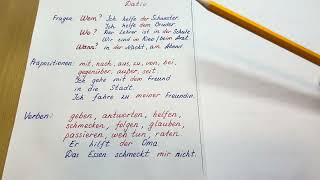 Dativ
Fragen Wem? Ich helfe der Schwester.
Ich helfe dem Bruder
Wo? Der Lehrer ist in der Schule
Wir sind im Kino / beim Arzt
Wann? in der Nacht, am Abend
Präpositionen: mit, nach, aus, zu, von, bei,
gegenüber, außer, seit.
Ich gehe mit dem Freund
in die Stadt.
Ich fahre zu meiner Freundin.
Verben: geben, antworten, helfen,
schmecken, folgen, glauben,
passieren, weh tun, raten.
Er hilft der Oma
Das Essen schmeckt mir nicht.